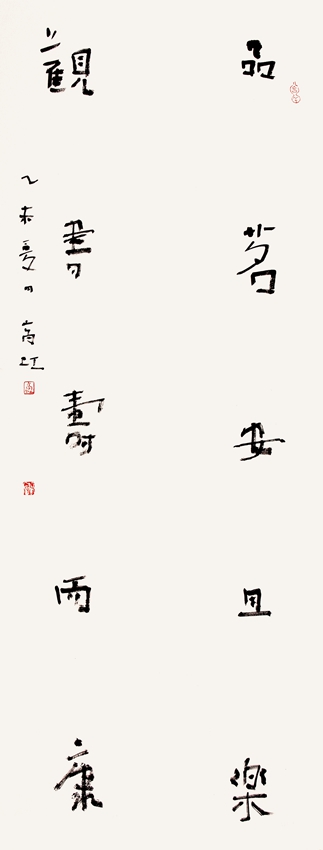 品茗安且樂
觀書壽而康
乙未夏日